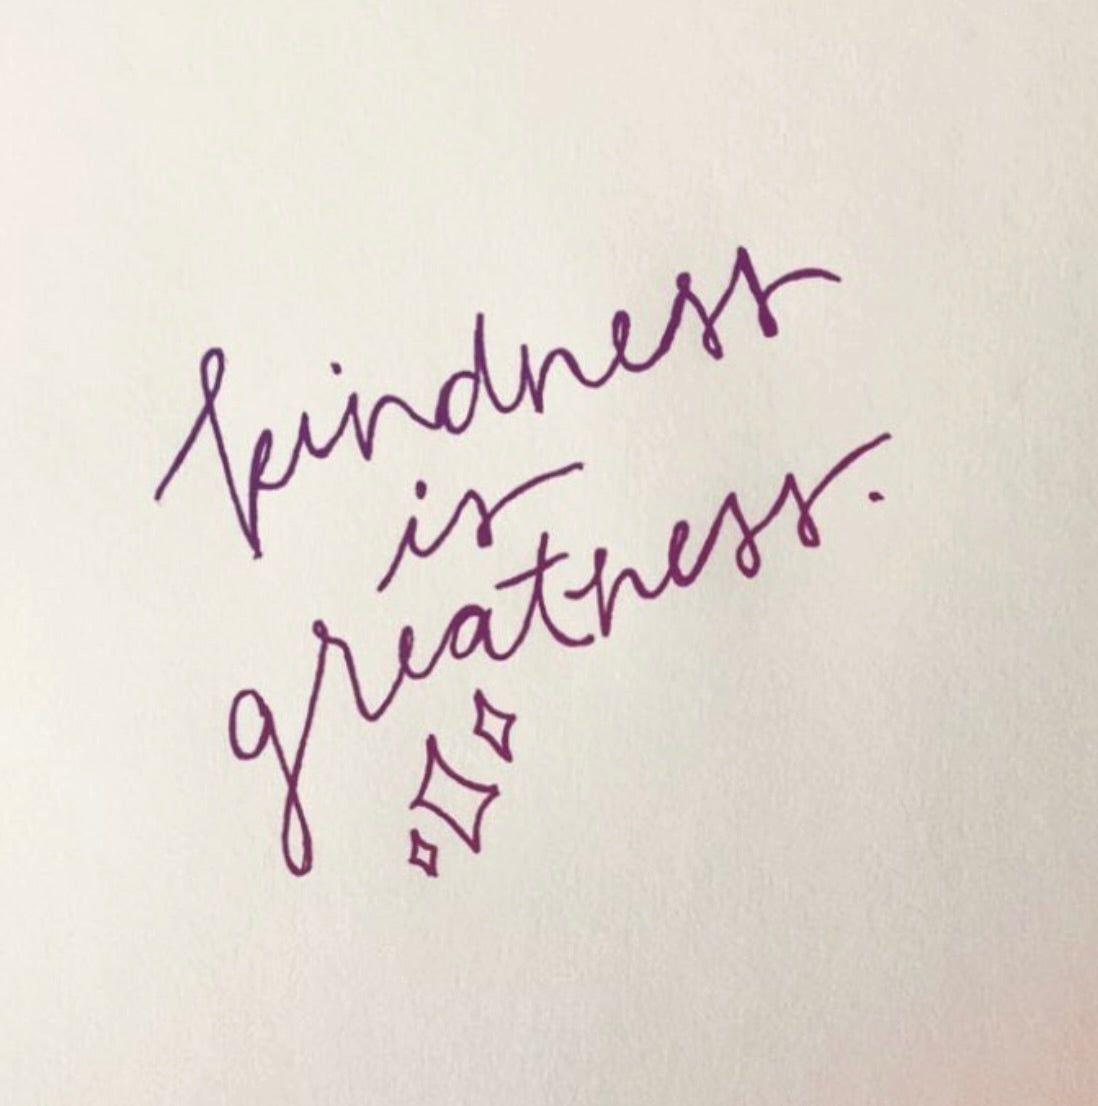 kindness
is
greatness.